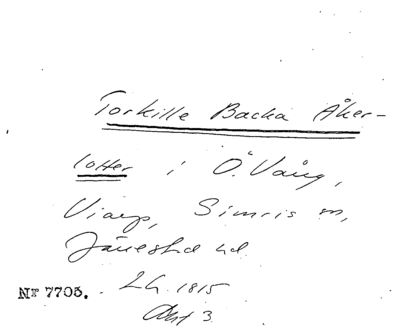 Torkille Backa Åker-
lotter i Ö. Vång,
Viarp, Simris sn,
Järrestad hd.
Nr 7705. LG. 1815
Akt 3